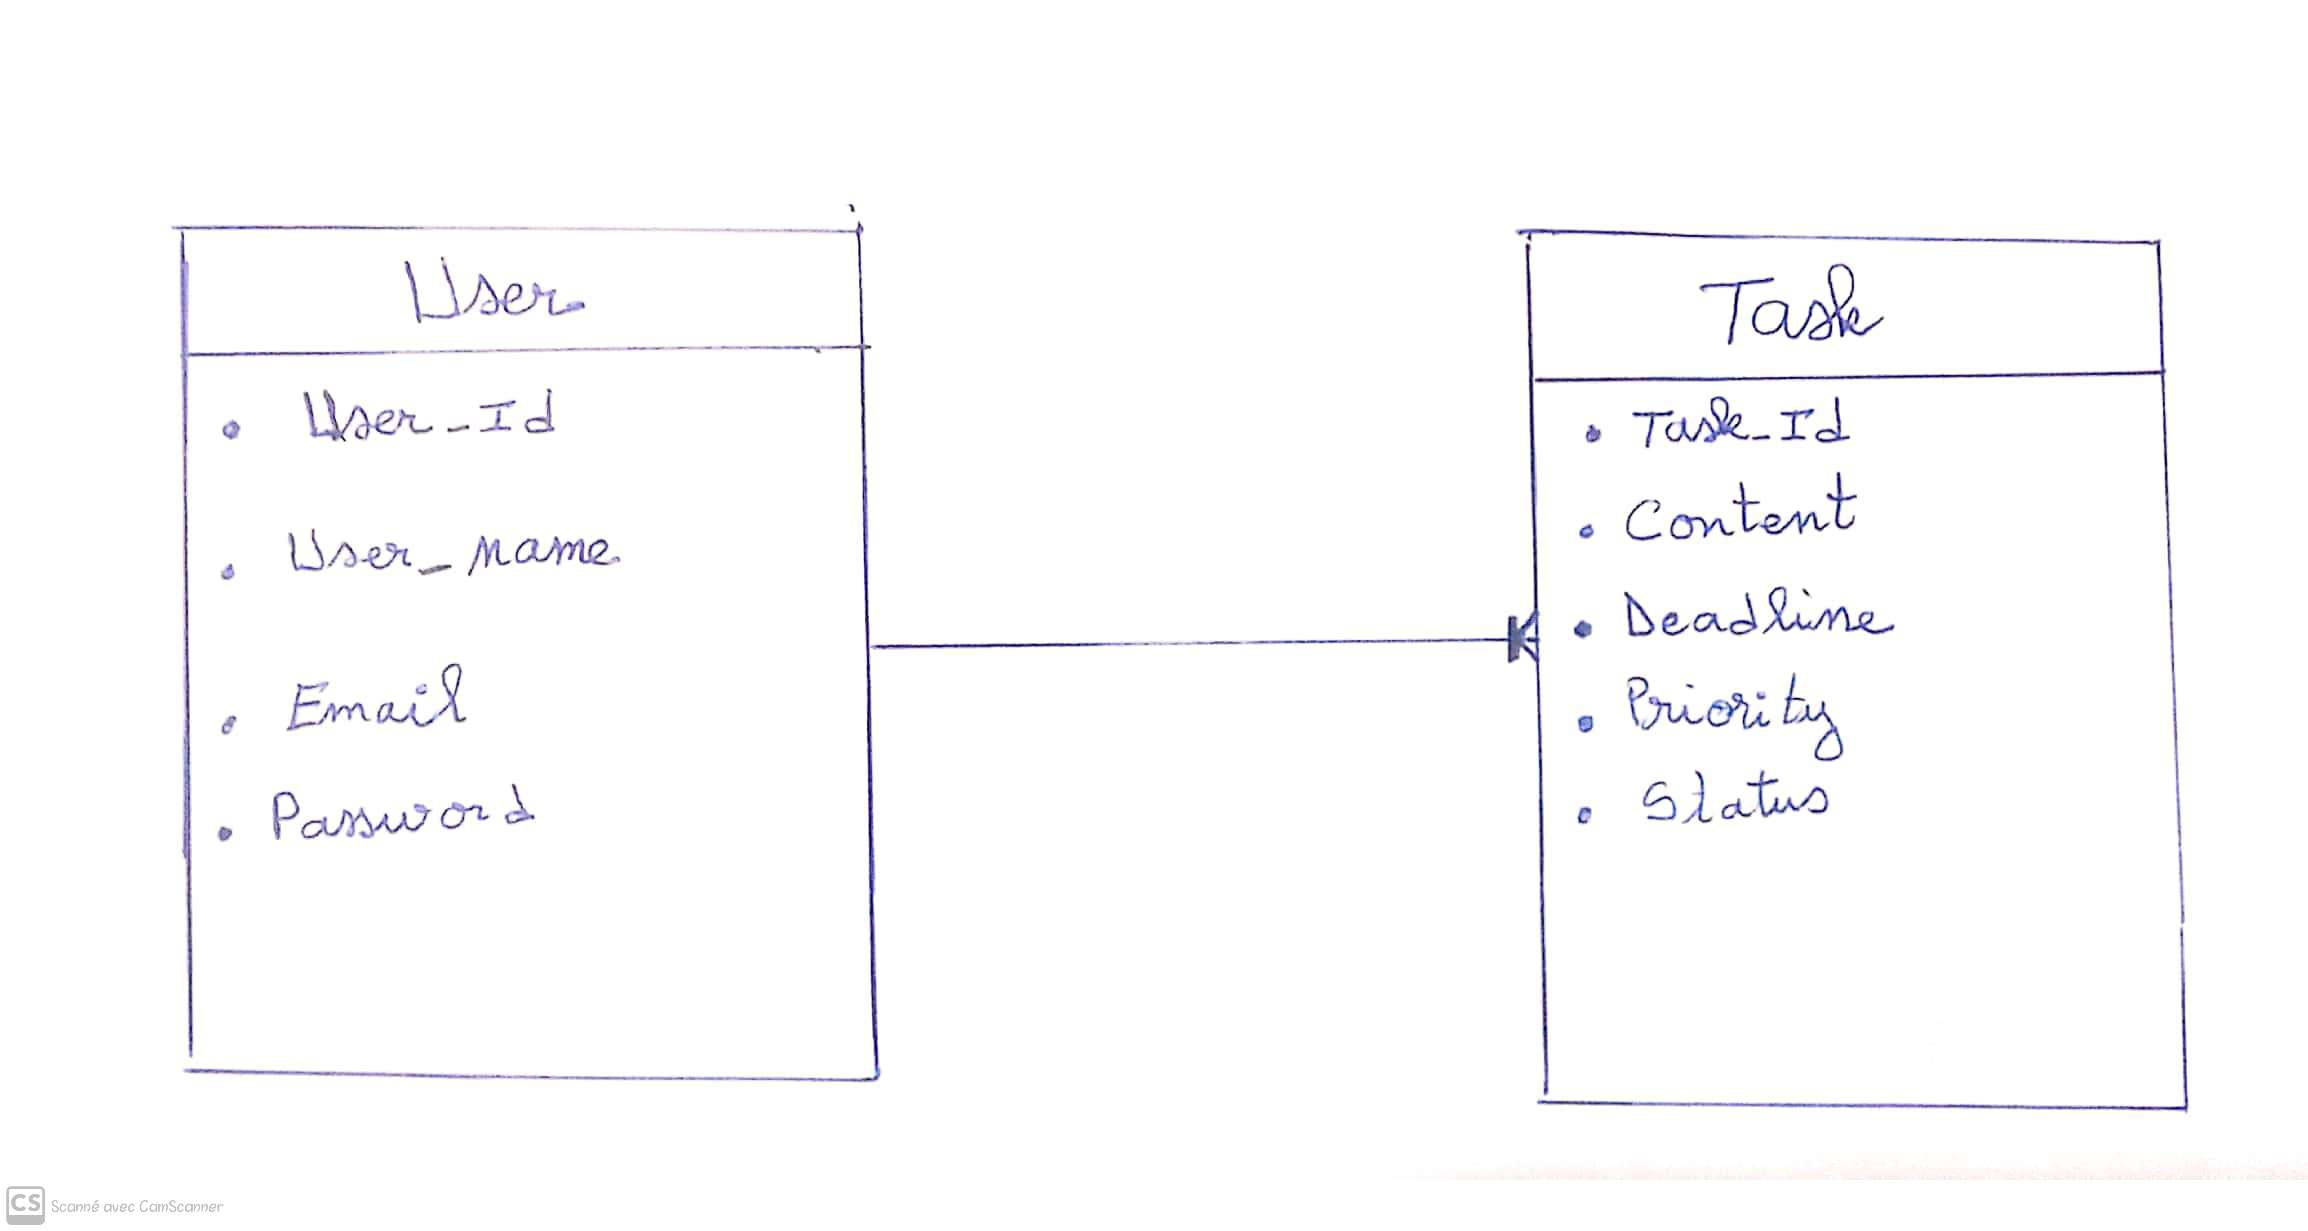 User
User_Id
User_name
Email
Password
Task
Task_Id
Content
Deadline
Priority
Status
CS Scanné avec CamScanner